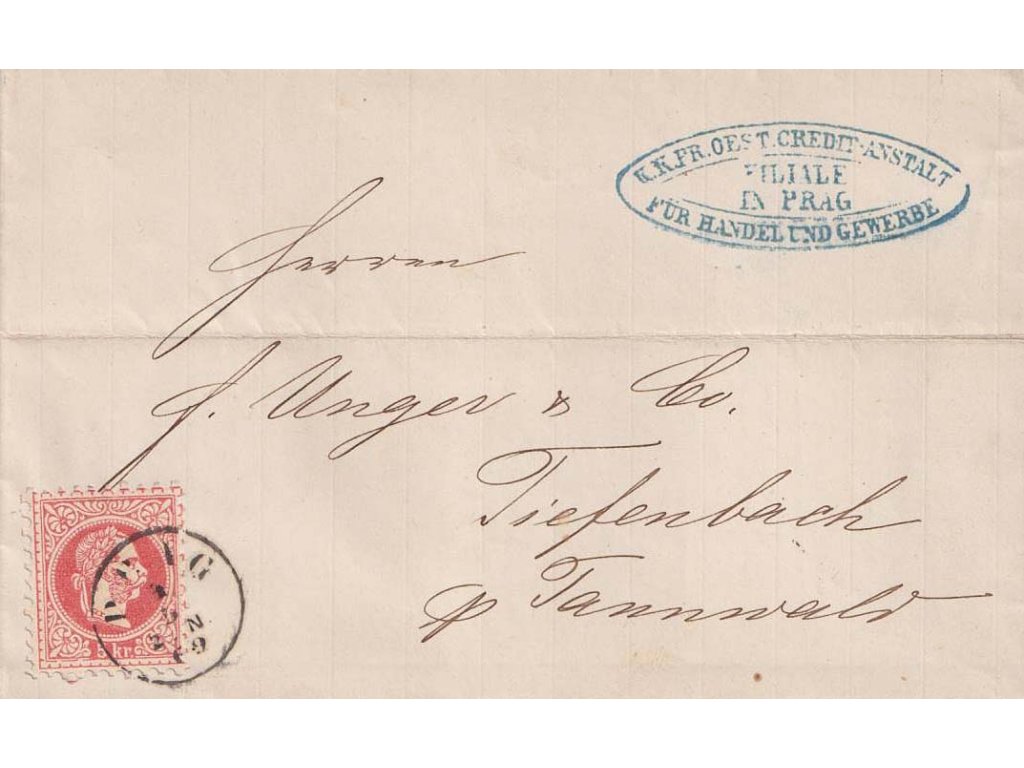 K.K.PR.OEST.CREDIT-ANSTALT
FILIALE
IN PRAG
FÜR HANDEL UND GEWERBE
Herren
J. Unger & Co.
Tiefenbach
p Tannwald
PRAG
5 kr.